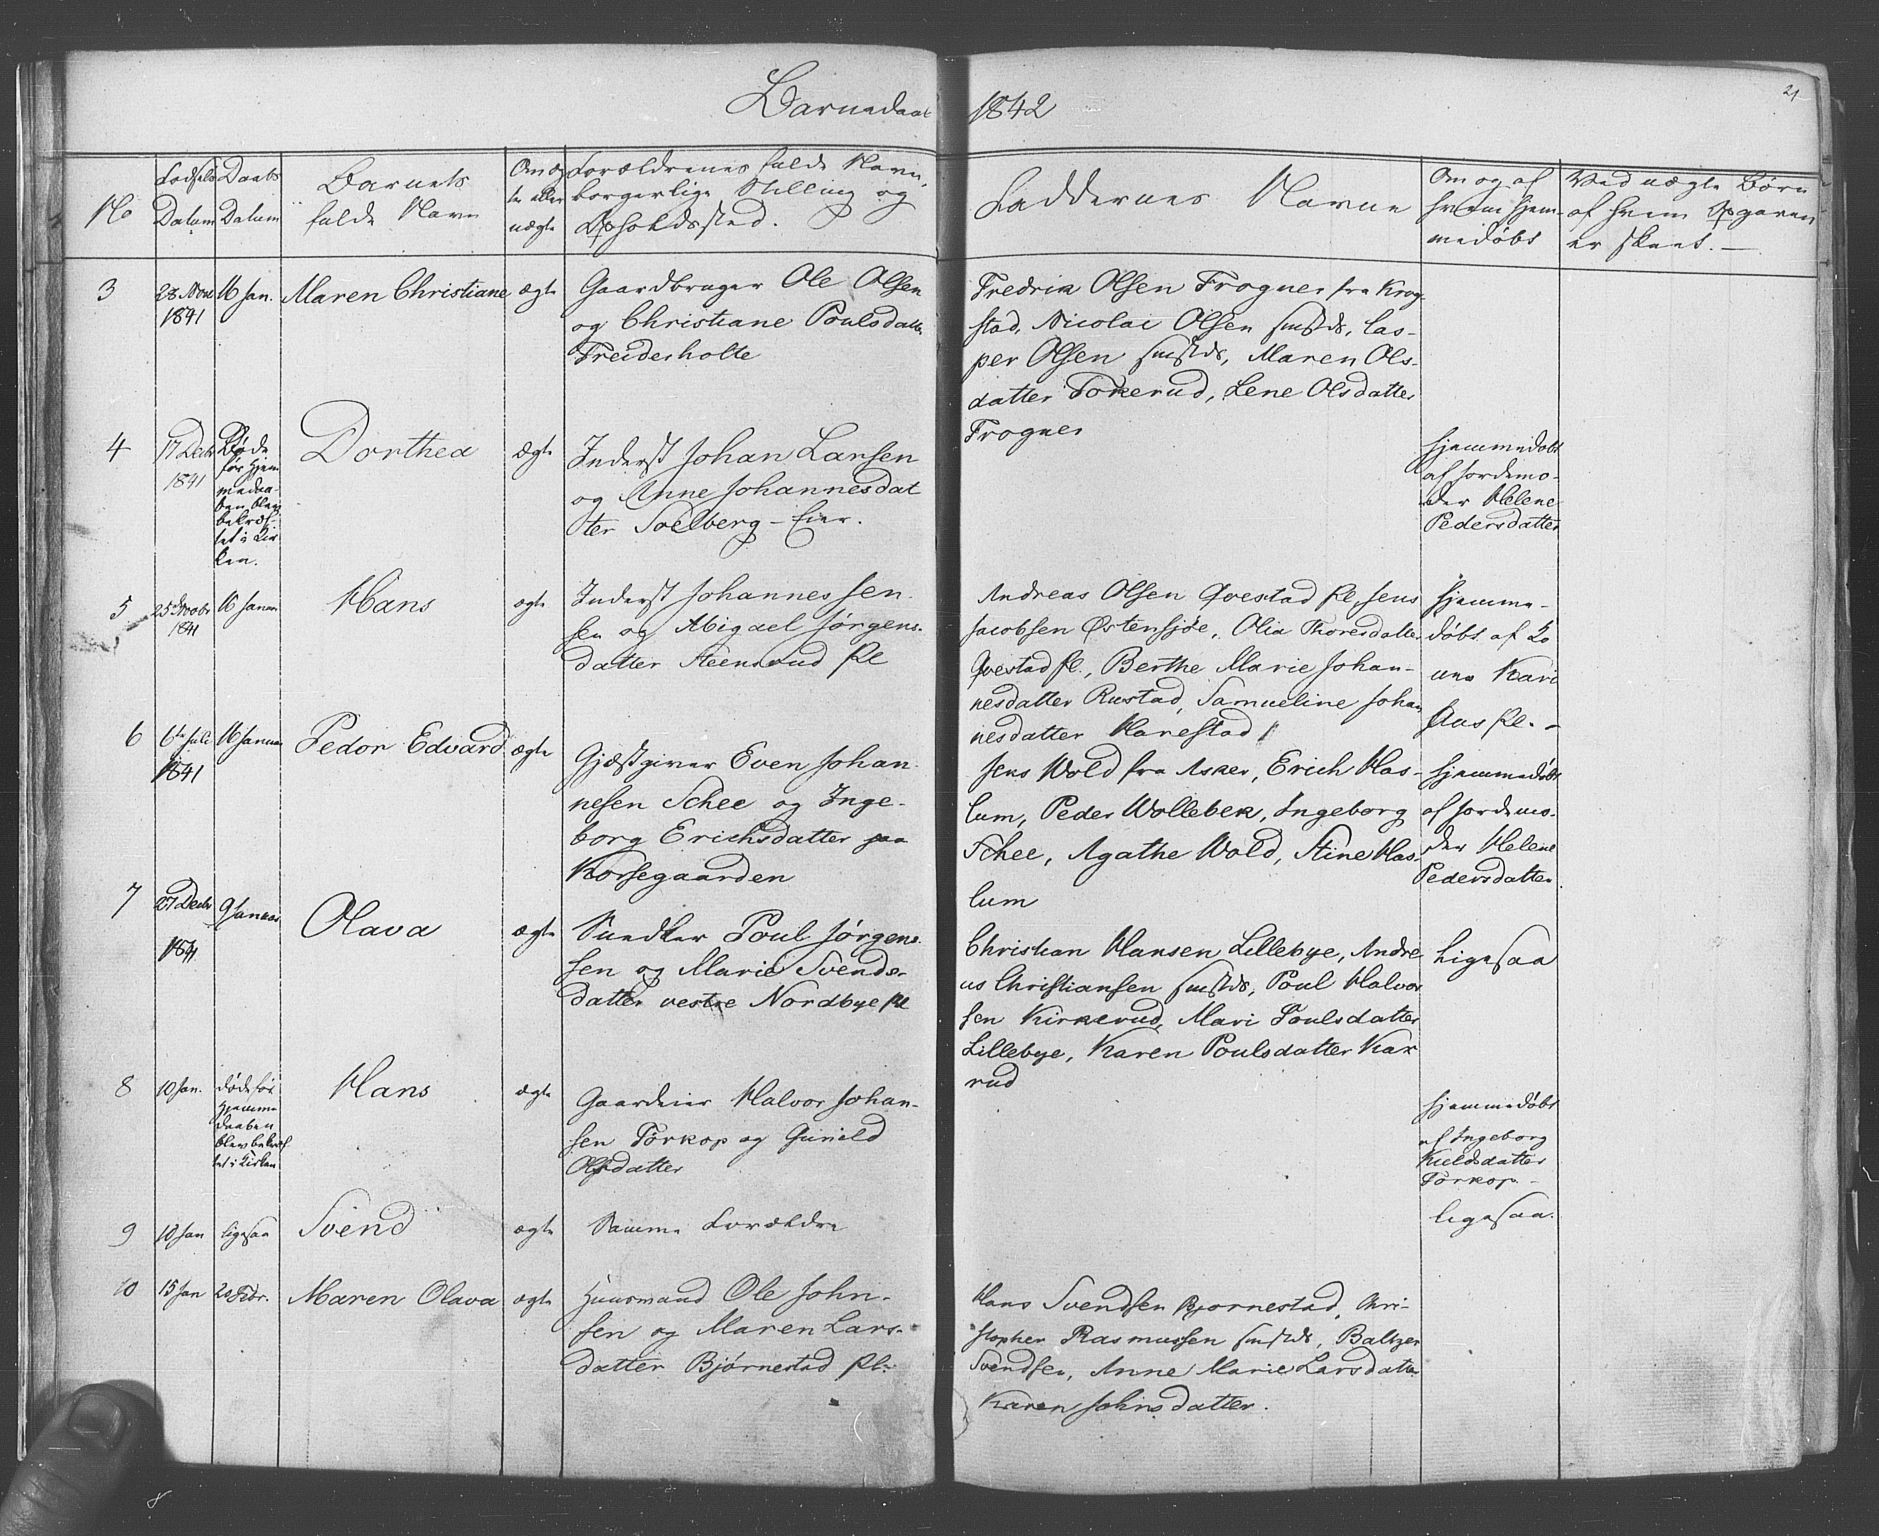 Barnedaab 1842
21
No
Fødsels Datum
Daabs Datum
Barnets
fulde Navn
Om æg
te eller
uægte
Forældrenes fulde Navn,
borgerlige Stilling og
Opholdssted.
Faddernes Navne
Om og af
hvem hjem-
medøbt
Ved uægte Børn
af hvem Opgaven
er skeet. —
3
28 Nov
1841
16 Jan.
Maren Christiane
ægte
Gaardbruger Ole Olsen
og Christiane Poulsdatter
Freiderholte
Fredrik Olsen Frogner fra Krog
stad, Nicolai Olsen smstds, Cas-
per Olsen smstds, Maren Ols-
datter Tokerud, Lene Olsdatter
Frogner
4
17 Decbr
1841
Døde
før Hjem
medaa-
ben blev
bekræf-
tet i Kir
ken.
Dorthea
ægte
Inderst Johan Larsen
og Anne Johannesdat
ter Solberg - Eier.
hjemmedøbt
af Jordemo-
der Helene
Pedersdatter
5
25 Novbr
1841
16 Januar
Hans
ægte
Inderst Johannes Jen-
sen og Abigael Jørgens-
datter Steensrud Pl
Andreas Olsen Qvestad Pl, Jens
Jacobsen Østensjøe, Olia Thoresdatter
Qvestad Pl., Berthe Marie Johan-
nesdatter Rustad, Samueline Johan
nesdatter Harestad
hjemme-
døbt af Ko
nen Kari
Aas Pl. -
6
6te Juli
1841
16 Januar
Peder Edvard
ægte
Gjæstgiver Even Johan-
nesen Schee og Inge-
borg Erichsdatter paa
Korsegaarden
Jens Wold fra Asker, Erich Has-
lum, Peder Wollebek, Ingeborg
Schee, Agathe Wold, Stine Has-
lum
hjemmedøbt
af Jordemo-
der Helene
Pedersdatter
7
27 Decbr
1841
9 Januar
Olava
ægte
Snedker Poul Jørgen-
sen og Marie Svends-
datter vestre Nordbye Pl
Christian Hansen Lillebye, Andre
as Christiansen smstds, Poul Halvor
sen Kirkerud, Mari Poulsdatter
Lillebye, Karen Poulsdatter Kax
rud
ligesaa
8
10 Jan.
døde før
Hjemme
daaben
blev bekræf
tet i Kirken
Hans
ægte
Gaardeier Halvor Johan-
sen Torkop og Gunild
Olsdatter
hjemmedøbt
af Ingeborg
Kieldsdatter
Torkop -
9
10 Jan
ligesaa
Svend
ægte
Samme Forældre
ligesaa.
10
15 Jan
20 Febr.
Maren Olava
ægte
Huusmand Ole John-
sen og Maren Lars-
datter Bjørnestad Pl.
Hans Svendsen Bjørnestad, Chri-
stopher Rasmussen smstds, Baltzer
Svendsen, Anne Marie Larsdatter
Karen Johnsdatter.
8